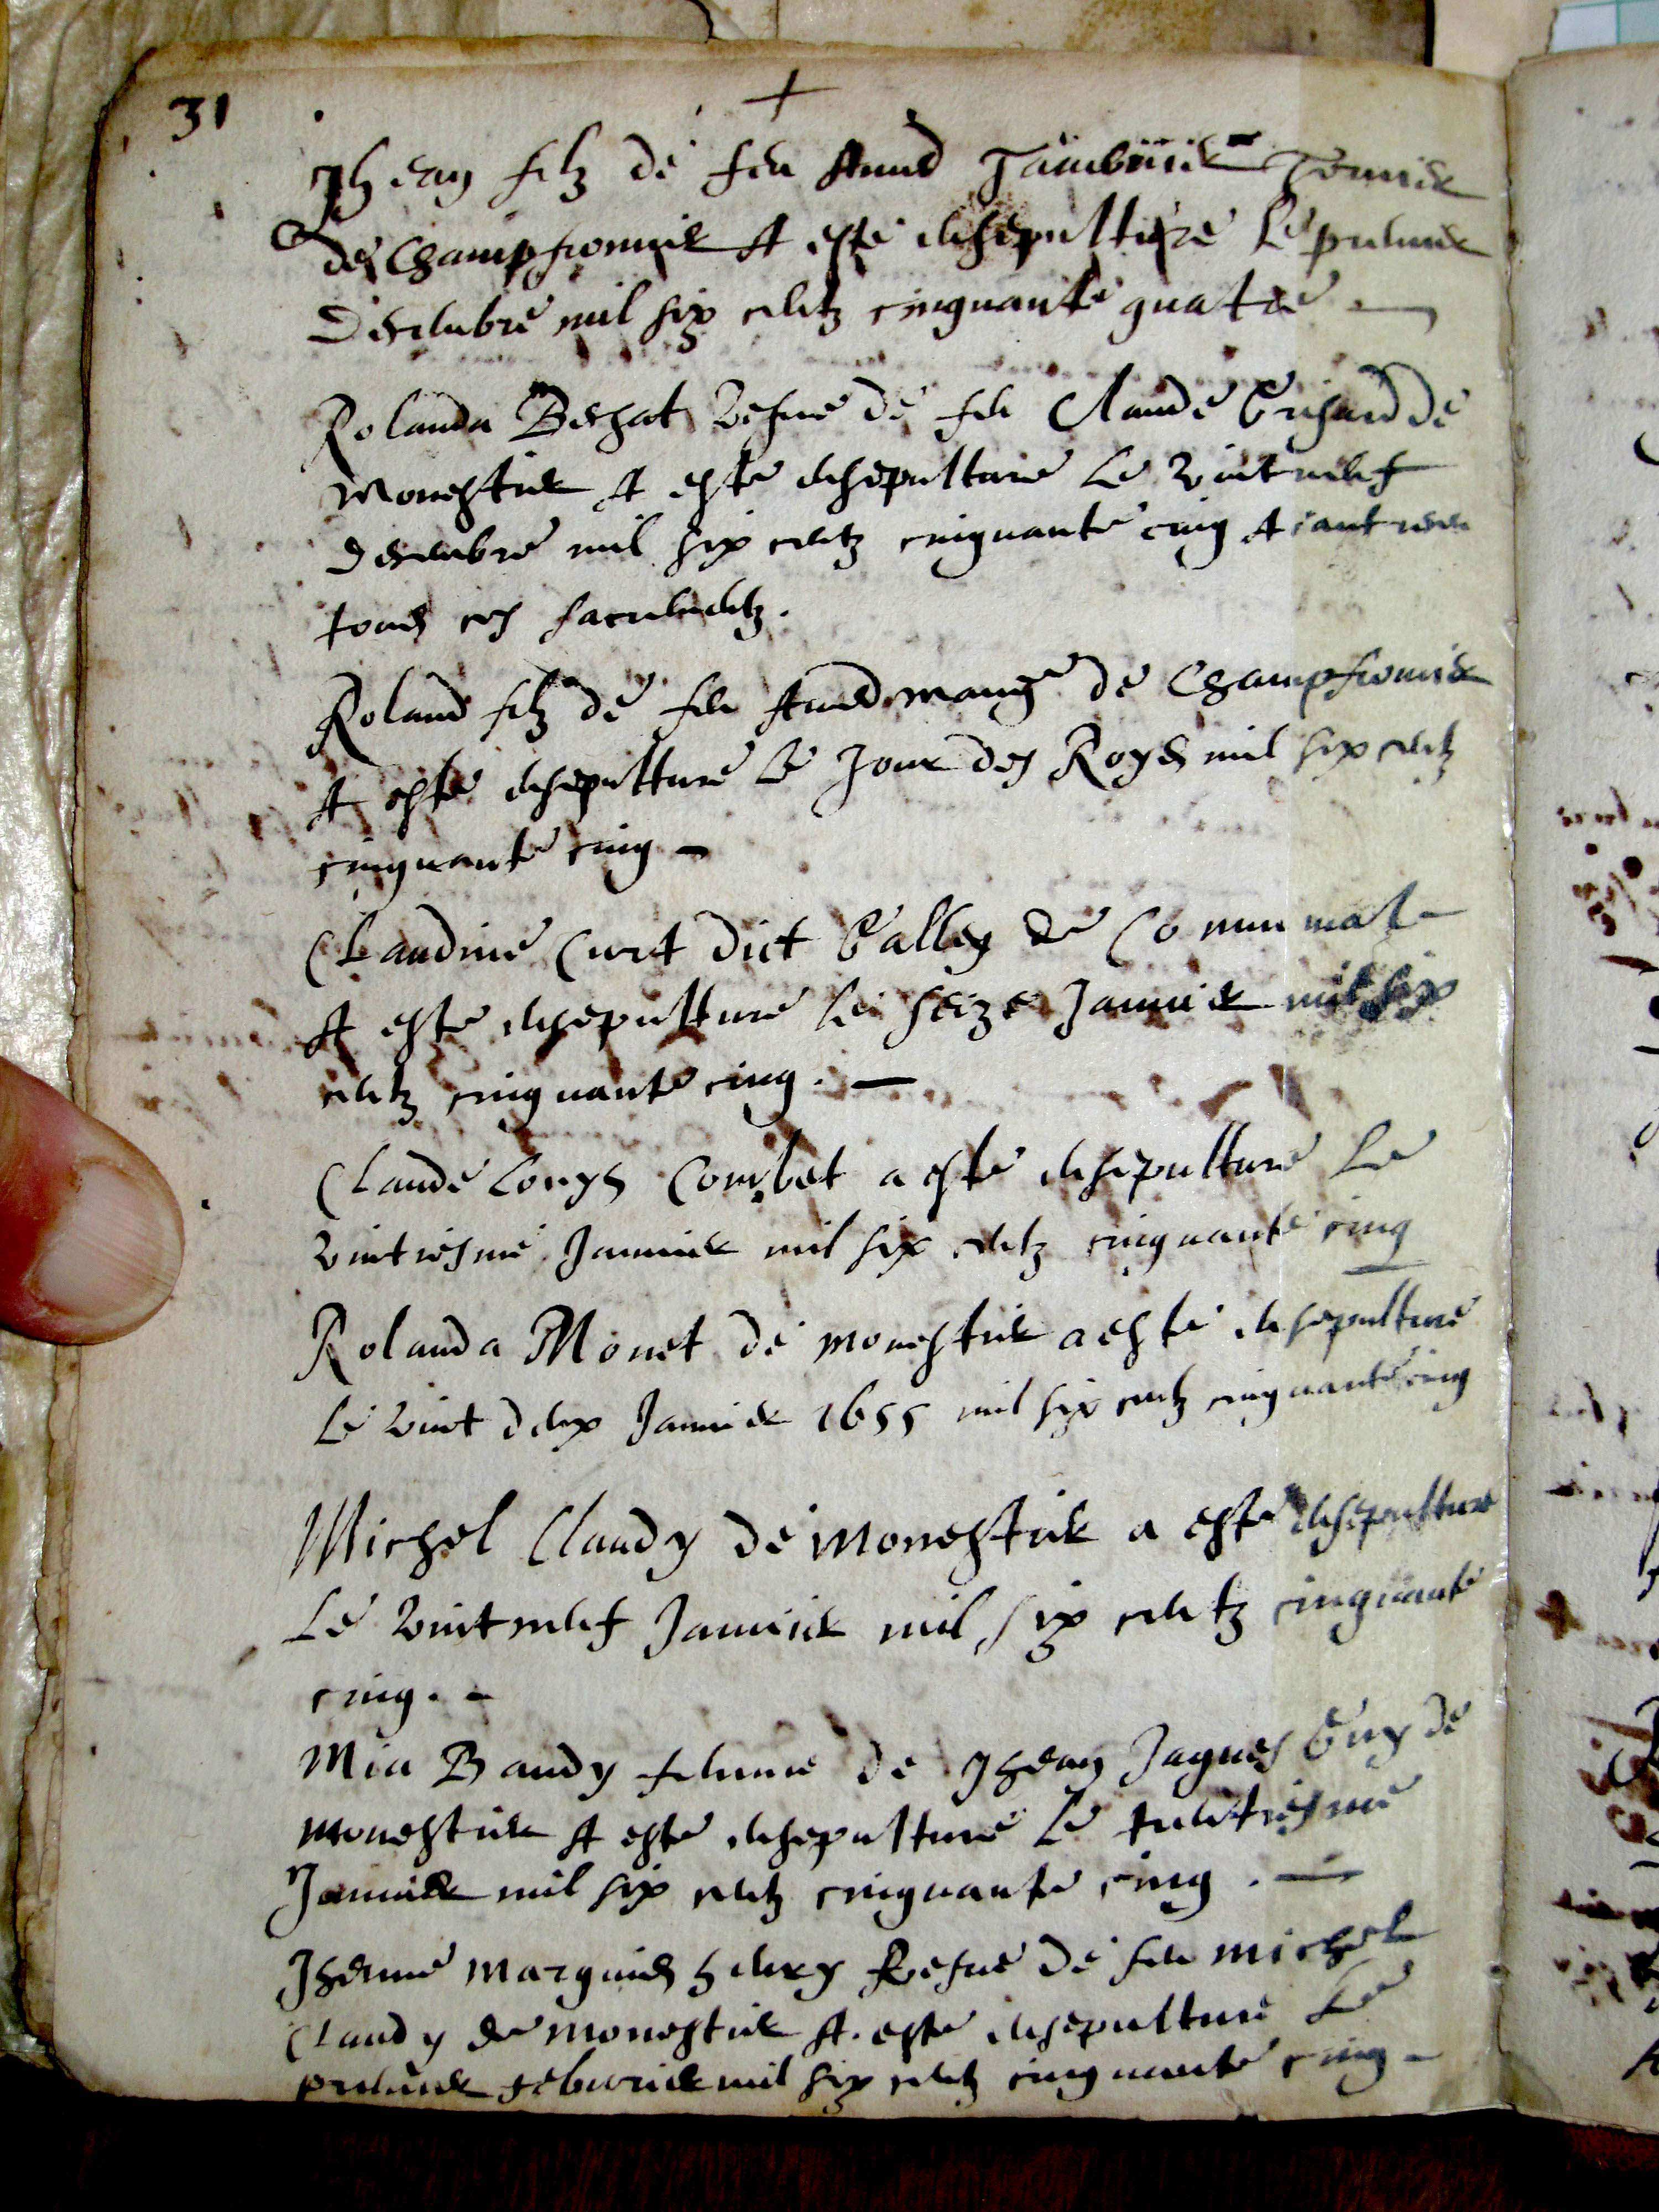 31
Jhean filz de feu And Tamburier
de Champfromier A esté ensepulturé Le premier
Decembre mil six centz cinquante quatre
Rolanda Bechat vefue de feu Claude de
monestier A esté ensepulturé Le vint neuf
decembre mil six centz cinquante cinq Aiant receu
tous ces sacrementz.
Roland filz de feu And mange de Champfromier
A esté ensepulturé Le Jour des Roys mil six centz
cinquante cinq
Claudine Curt dict Ballez de Communal
A esté ensepulturé Le seize Januier mil six
centz cinquante cinq.
Claude Corps Combet a esté ensepulturé Le
vintiesme Januier mil six centz cinquante cinq
Rolanda Monet de monestier a esté ensepulturé
Le vint deux Januier 1655 mil six centz cinquante cinq
Michel Claudy de monestier a esté ensepulturé
Le vint neuf Januier mil six centz cinquante
cinq.
Mia Baudy femme de Jhean Jaques Guy de
monestier A esté ensepulturé Le trentiesme
Januier mil six centz cinquante cinq.
Jhenne vefue de feu michel
Claudy de monestier A esté ensepulturé Le
premier feburier mil six centz cinquante cinq